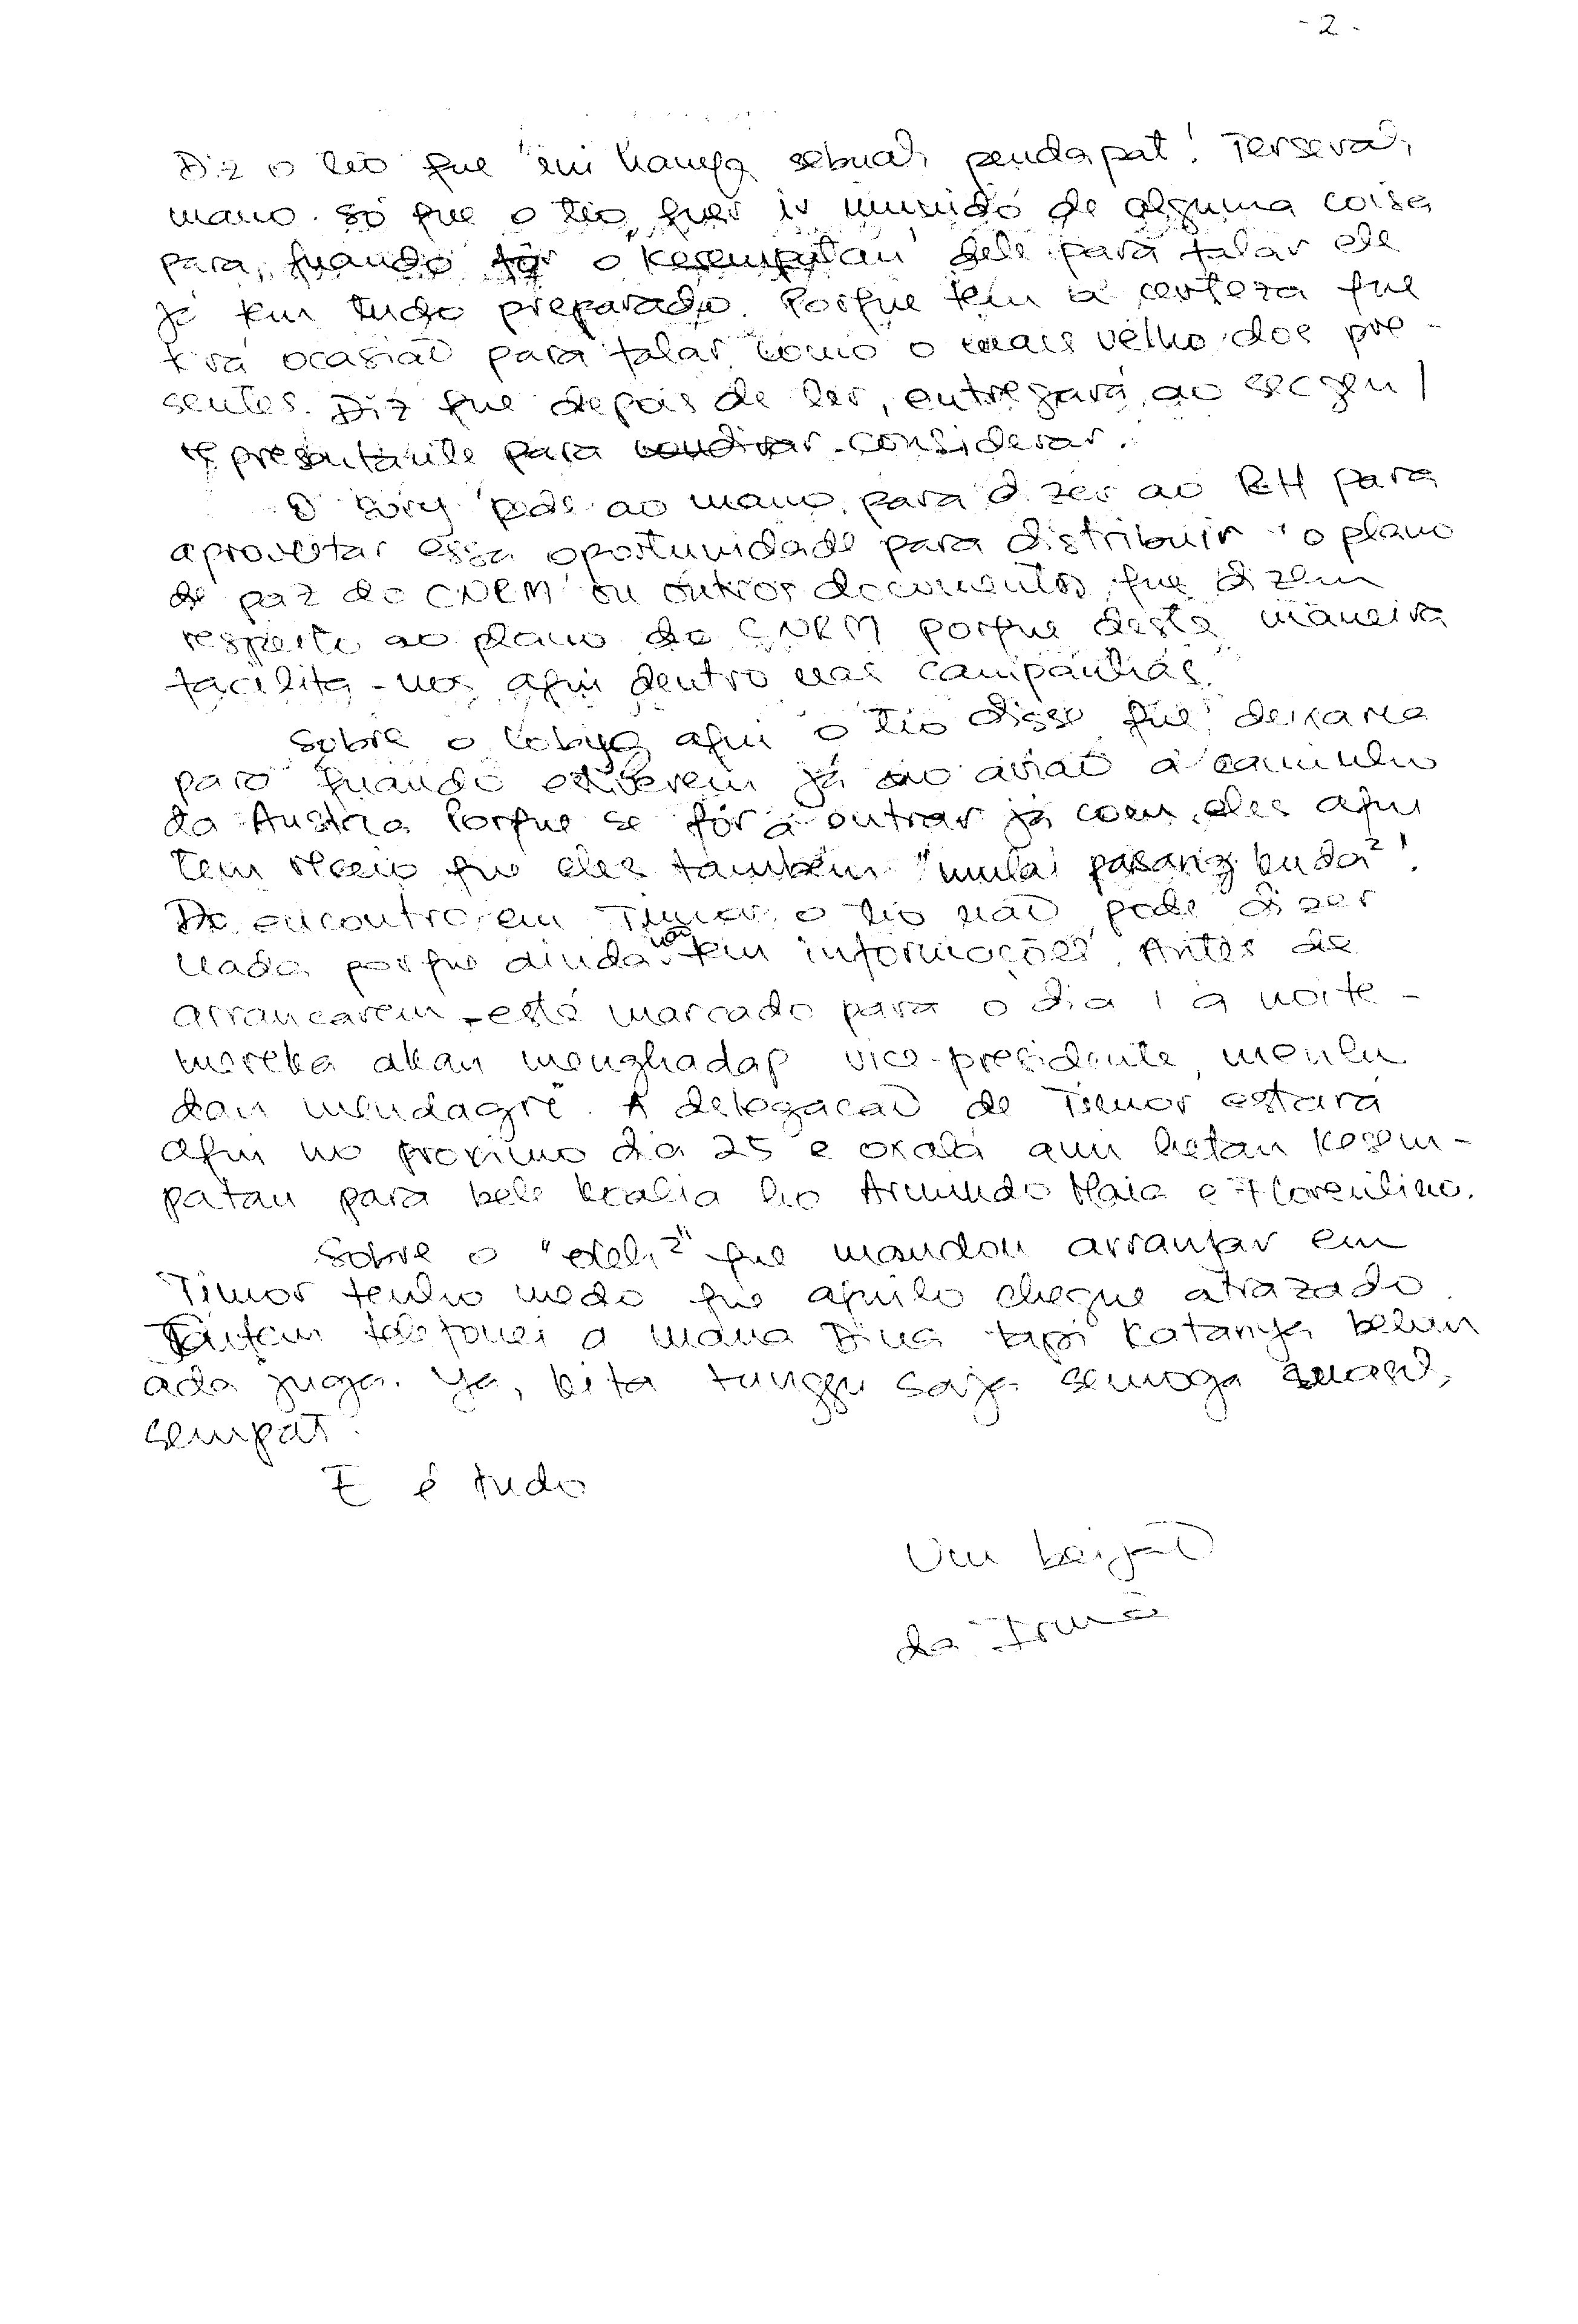 - 2 -
Diz o tio que "ini hanya sebuah pendapat". Terserah
mano. Só que o tio quer ir munido de alguma coisa
para, quando fôr o "kesempatan" dele para falar ele
já tem tudo preparado. Porque tem a certeza que
t'rá ocasião para falar como o mais velho dos pre-
sentes. Diz que depois de ler, entregará ao secgen /
representante para considerar.
O pede ao mano para dizer ao RH para
aproveitar essa oportunidade para distribuir "o plano
de paz do CNRM" ou outros documentos que dizem
respeito ao plano do CNRM porque desta maneira
facilita-nos aqui dentro nas campanhas.
Sobre o aqui o tio disse que deixaria
para quando estiverem já no avião a caminho
da Austria. Porque se fôr a entrar já com eles aqui
tem receio que eles também "mulai pasang kuda²".
Do encontro em Timor o tio não pode dizer
nada porque ainda não tem informações. Antes de
arrancarem - está marcado para o dia 1 à noite -
mereka akan menghadap vice-presidente, menlu
dan mendagri". A delegação de Timor estará
aqui no proximo dia 25 e oxalá ami hetan kesem-
patan para bele koalia ho Armindo Maia e Florentino.
Sobre o "oleh²" que mandou arranjar em
Timor tenho medo que aquilo chegue atrazado.
telefonei a mana Dina tapi katanya belum
ada juga. Ya, kita tunggu saja semoga masih
sempat.
E é tudo
Um beijão
da Irmã